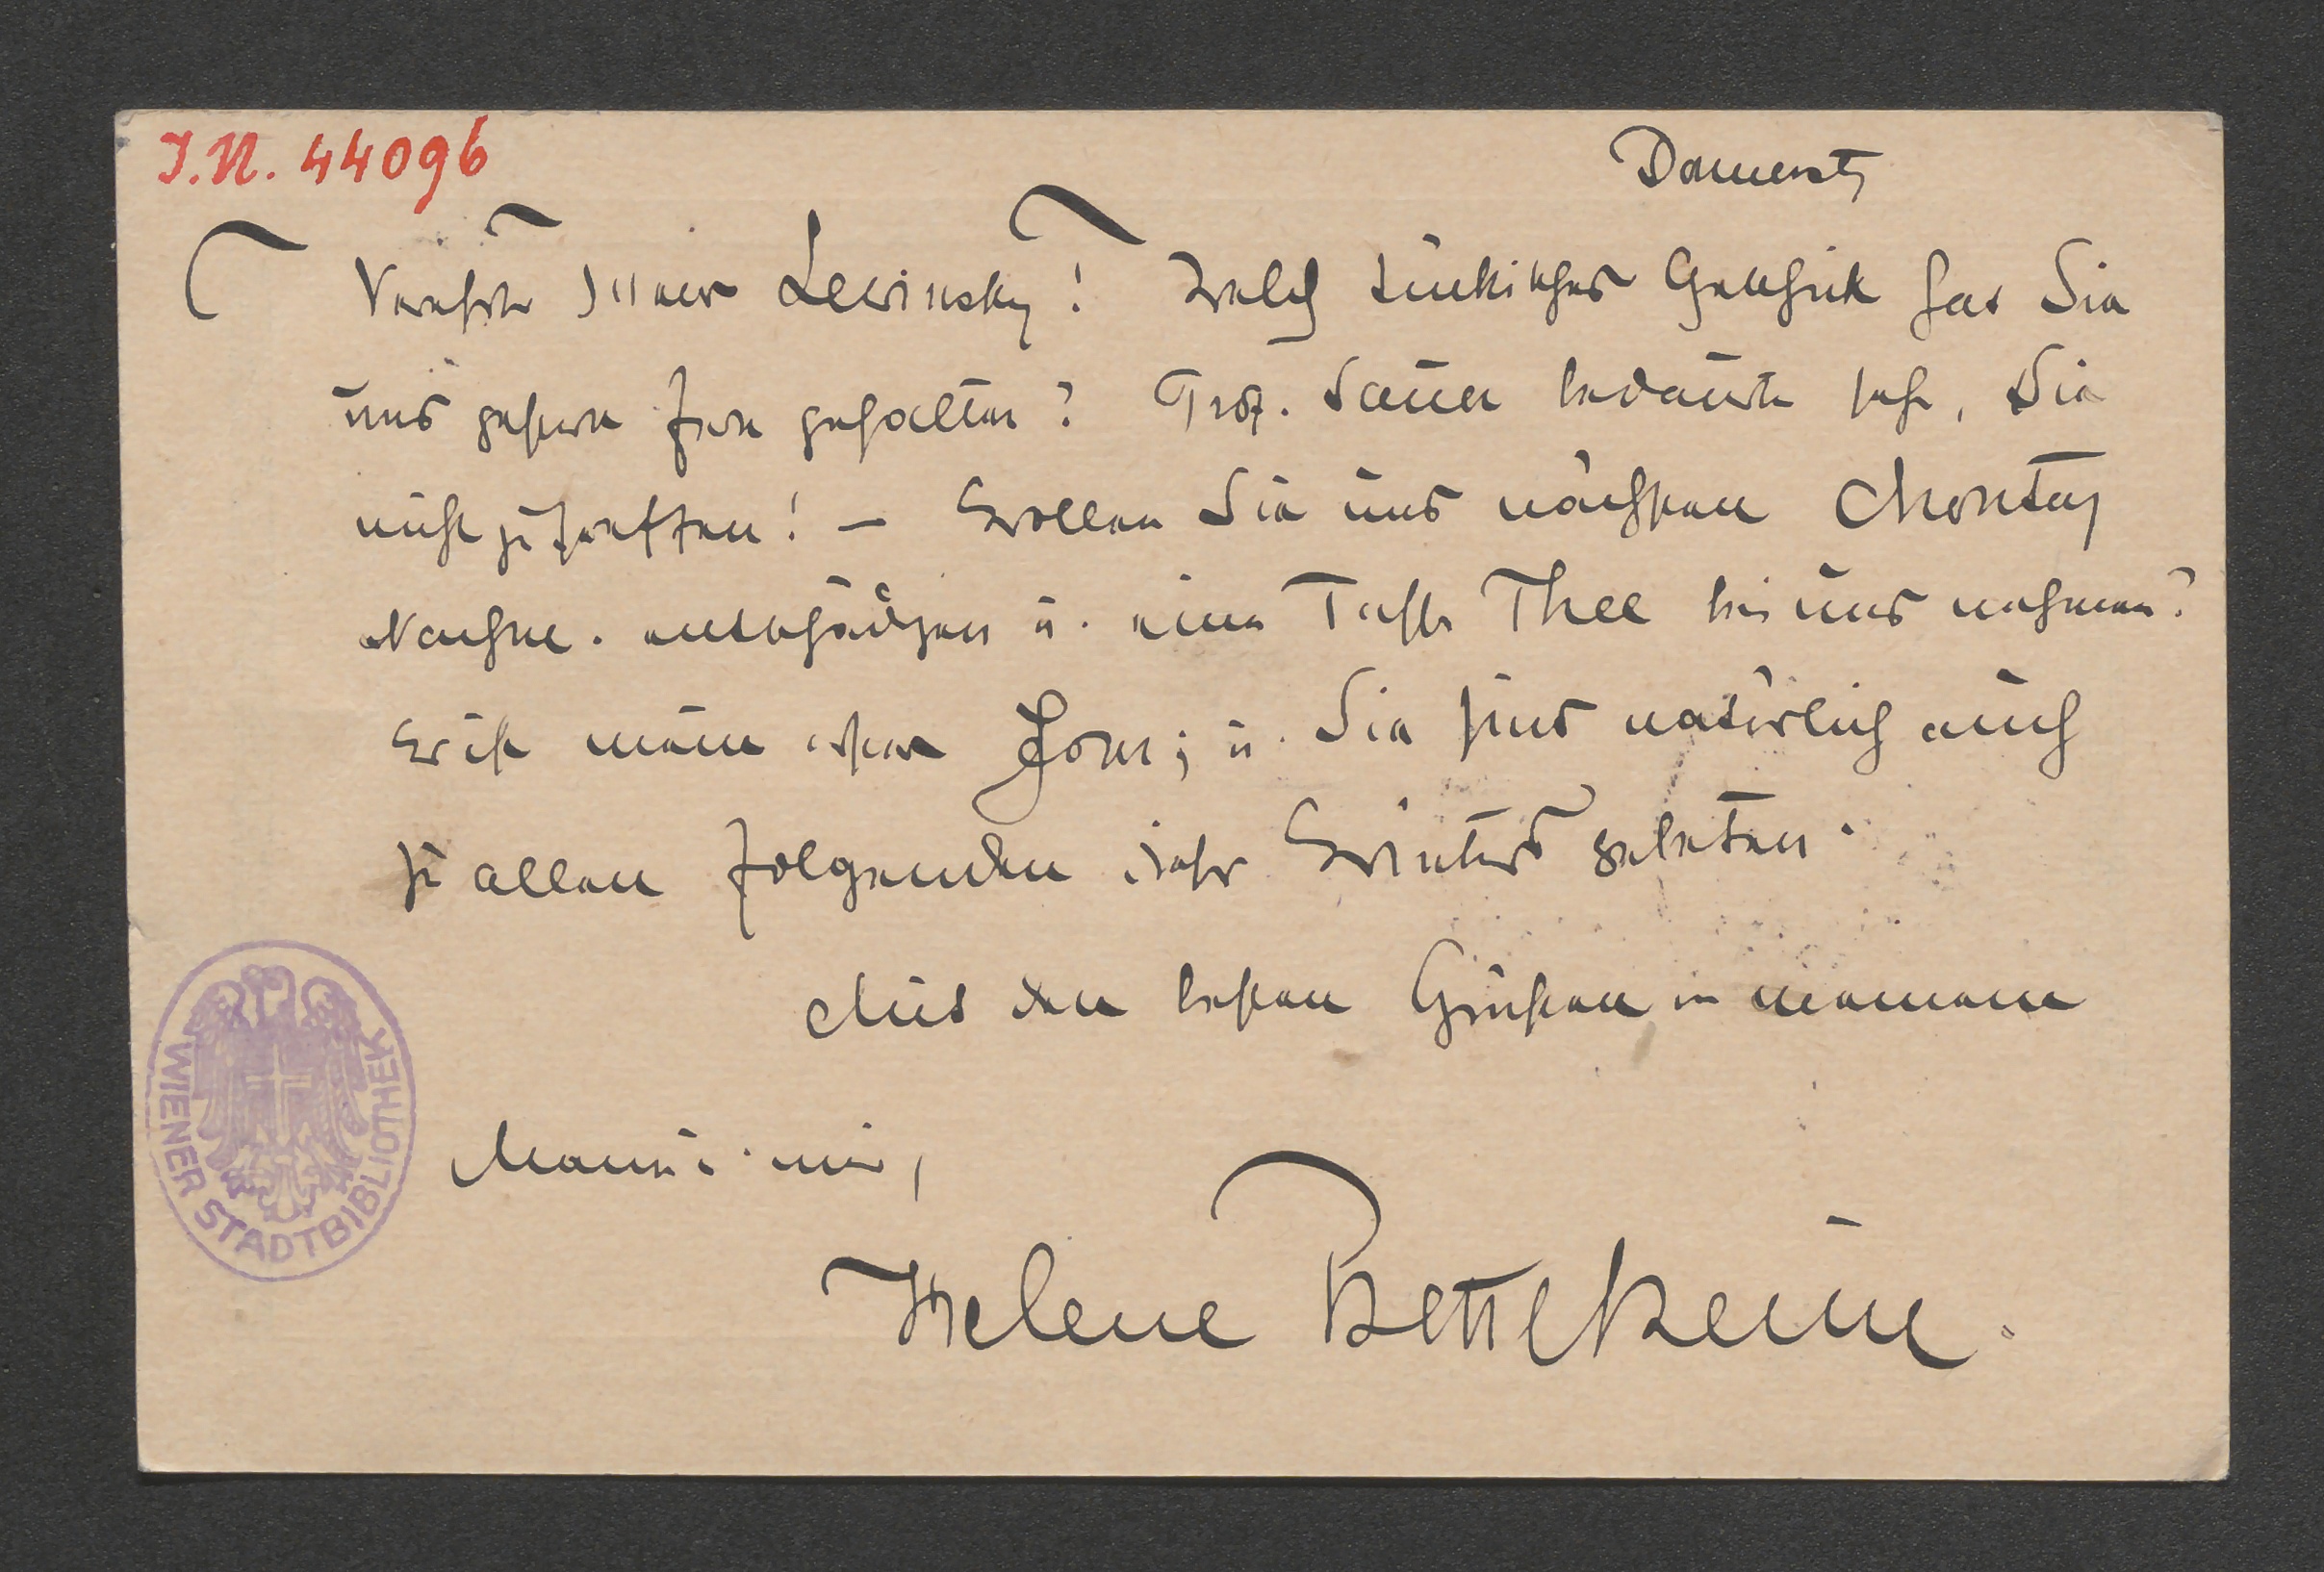 J.N. 44096
Donnerstg
Verehrter Lewinsky! Welch tückisches Geschick hat Sie
uns gestern fern gehalten? Prof. Sauer bedauerte sehr, Sie
nicht zu treffen! – Wollen Sie uns nächsten Montag
Nachm. entschädigen u. eine Tasse Thee bei uns nehmen?
Es ist mein erster Jour; u. Sie sind natürlich auch
zu allen folgenden Winters gebeten.
Mit den besten Grüßen meinem
Mann u. mir,
Helene Bettelheim.
WIENER STADTBIBLIOTHEK